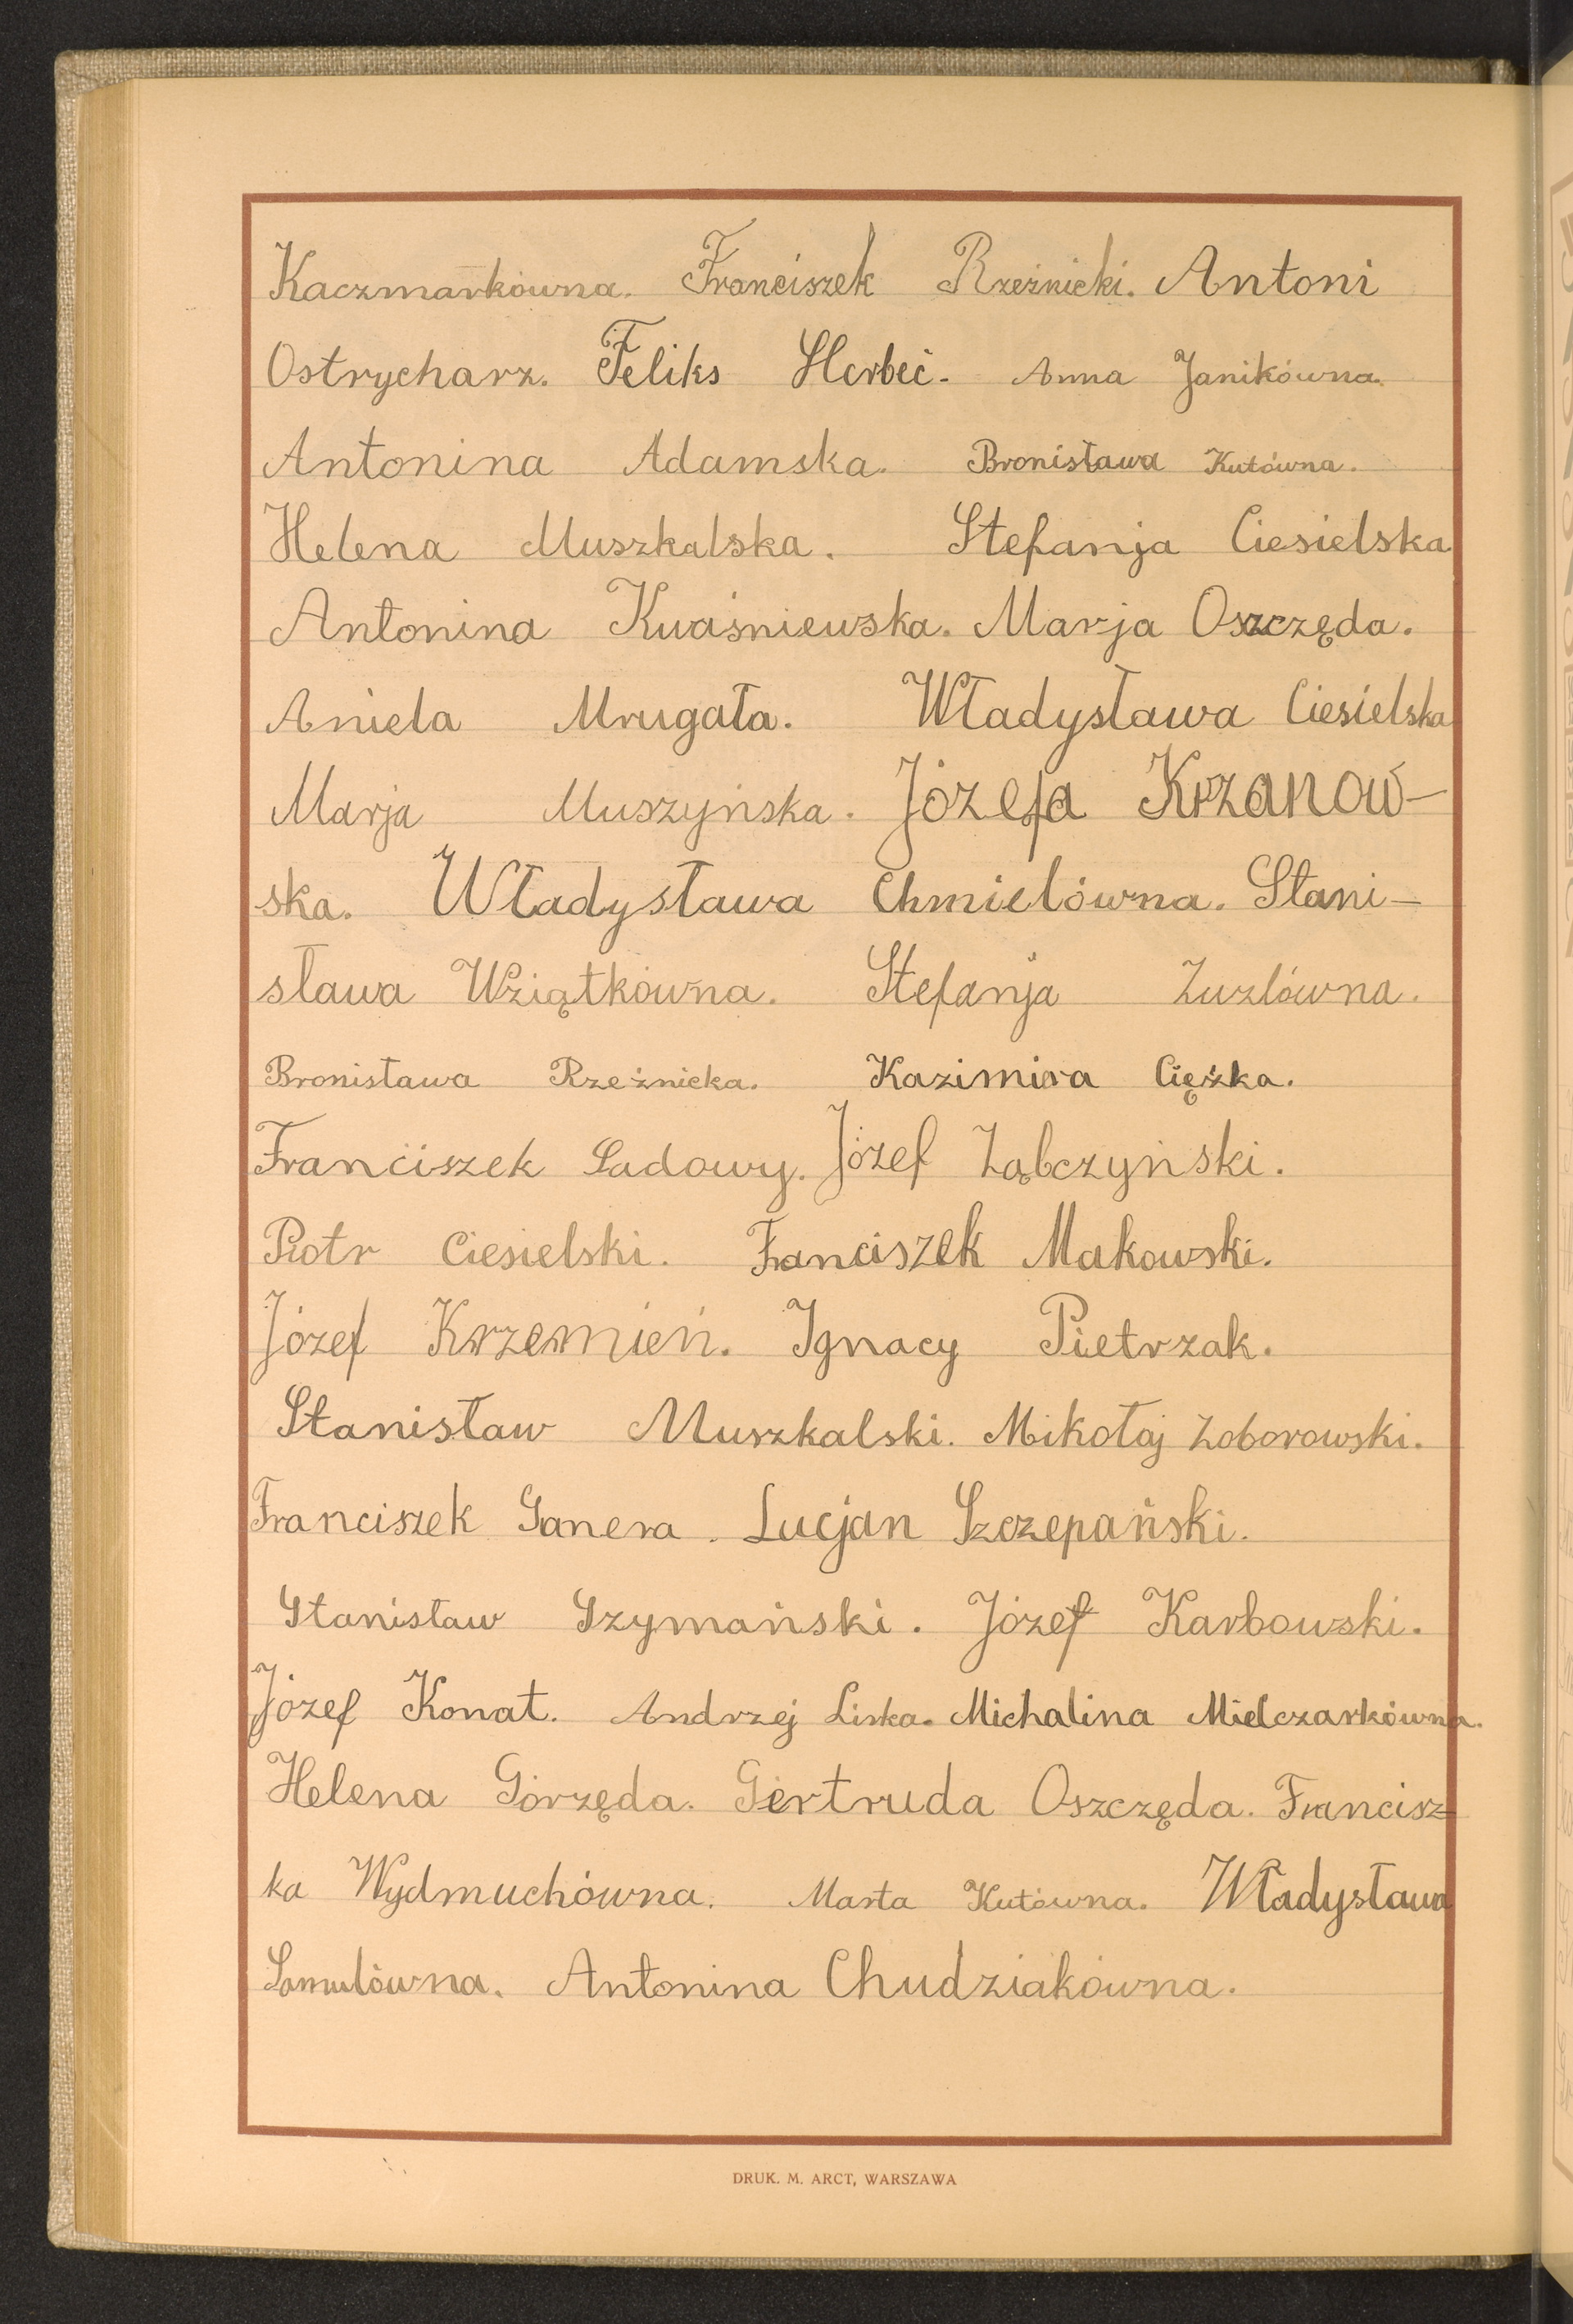 Kaczmarkówna. Franciszek Rzeźnicki. Antoni
Ostrycharz. Feliks Herbeć. Anna Janikówna.
Antonina Adamska. Bronisława Kutówna.
Helena Muszkalska. Stefanja Ciesielska
Antonina Kwaśniewska. Marja Oszczęda.
Aniela Mrugała. Władysława Ciesielska
Marja Muszyńska. Józefa Krzanow-
ska. Władysława Chmielówna. Stani-
sława Wziątkówna. Stefanja Zuzlówna.
Bronisława Rzeźnicka. Kazimira Ciężka.
Franciszek Sadowy. Józef Ząbczyński.
Piotr Ciesielski. Franciszek Makowski.
Józef Krzemień. Ignacy Pietrzak.
Stanisław Muszkalski. Mikołaj Zoborowski.
Franciszek Ganera. Lucjan Szczepański.
Stanisław Szymański. Józef Karbowski.
Józef Konat. Andrzej Liska. Michalina Mielczarkówna.
Helena Gorzęda. Gertruda Oszczęda. Francisz-
ka Wydmuchówna. Marta Kutówna. Władysława
Somulówna. Antonina Chudziakówna.
DRUK. M. ARCT, WARSZAWA